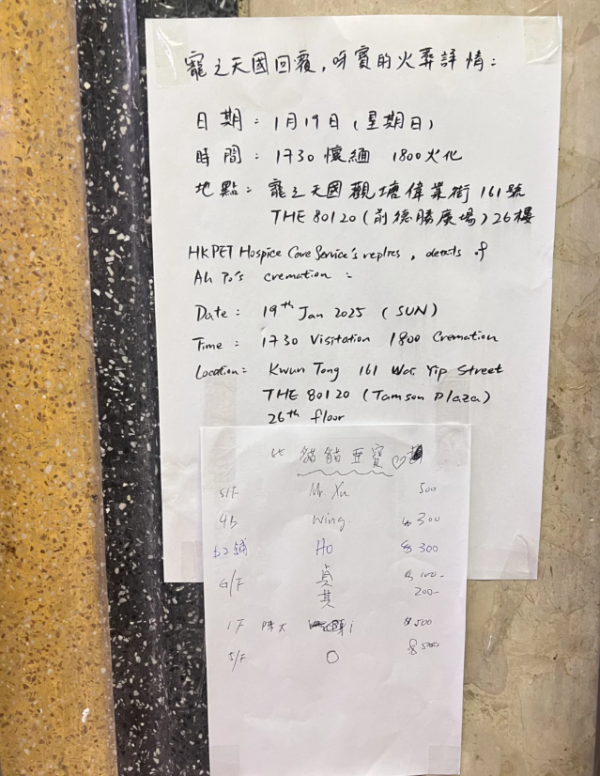 寵之天國回覆，呀寶的火葬詳情：
日期：1月19日（星期日）
時間：1730 懷緬 1800火化
地點：寵之天國觀塘偉業街161號
THE 80120（前德勝廣場）26樓
HK PET Hospice Care Service's replies, details of
Ah Po's cremation :
Date : 19th Jan 2025 (SUN)
Time : 1730 Visitation 1800 Cremation
Location : Kwun Tong 161 Wai Yip Street
THE 80120 (Tamson Plaza)
26th floor
貓貓亞寶♡
5/F Mr Xu 500
4b Wing $300
鋪 Ho $300
G/F 貞 $100-
其 200-
1F 陳太 $500
5/F O $500